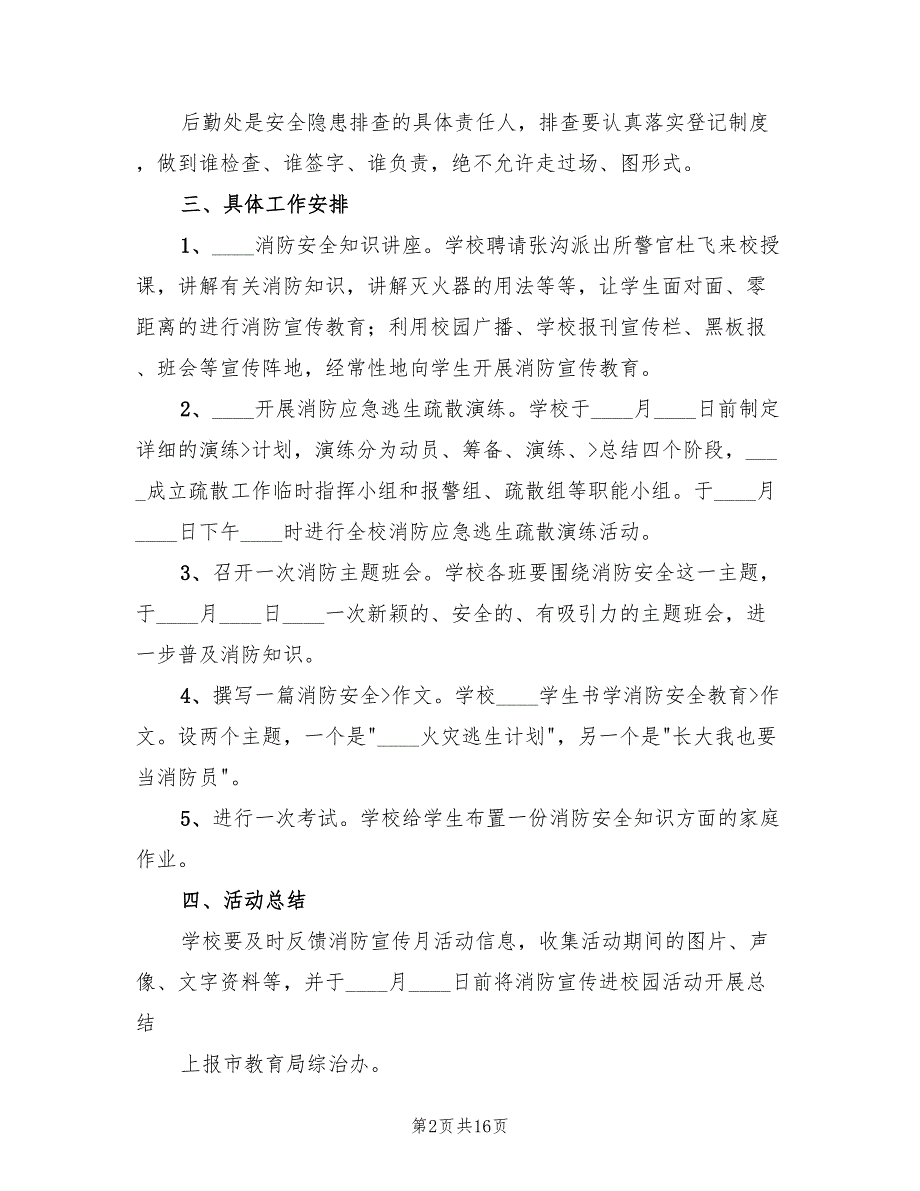 后勤处是安全隐患排查的具体责任人，排查要认真落实登记制度
，做到谁检查、谁签字、谁负责，绝不允许走过场、图形式。
三、具体工作安排
1、____消防安全知识讲座。学校聘请张沟派出所警官杜飞来校授
课，讲解有关消防知识，讲解灭火器的用法等等，让学生面对面、零
距离的进行消防宣传教育；利用校园广播、学校报刊宣传栏、黑板报
、班会等宣传阵地，经常性地向学生开展消防宣传教育。
2、____开展消防应急逃生疏散演练。学校于____月____日前制定
详细的演练>计划，演练分为动员、筹备、演练、>总结四个阶段，___
_成立疏散工作临时指挥小组和报警组、疏散组等职能小组。于____月
____日下午____时进行全校消防应急逃生疏散演练活动。
3、召开一次消防主题班会。学校各班要围绕消防安全这一主题，
于____月____日____一次新颖的、安全的、有吸引力的主题班会，进
一步普及消防知识。
4、撰写一篇消防安全>作文。学校____学生书学消防安全教育>作
文。设两个主题，一个是"____火灾逃生计划"，另一个是"长大我也要
当消防员"。
5、进行一次考试。学校给学生布置一份消防安全知识方面的家庭
作业。
四、活动总结
学校要及时反馈消防宣传月活动信息，收集活动期间的图片、声
像、文字资料等，并于____月____日前将消防宣传进校园活动开展总
结
上报市教育局综治办。
第2页共16页